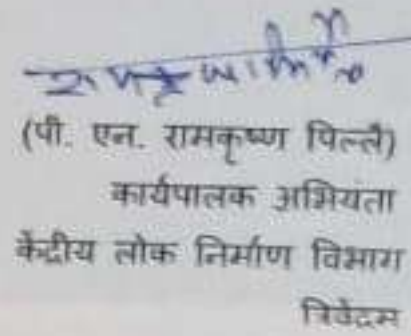 (पी. एन. रामकृष्ण पिल्लै)
कार्यपालक अभियंता
केंद्रीय लोक निर्माण विभाग
त्रिवेंद्रम